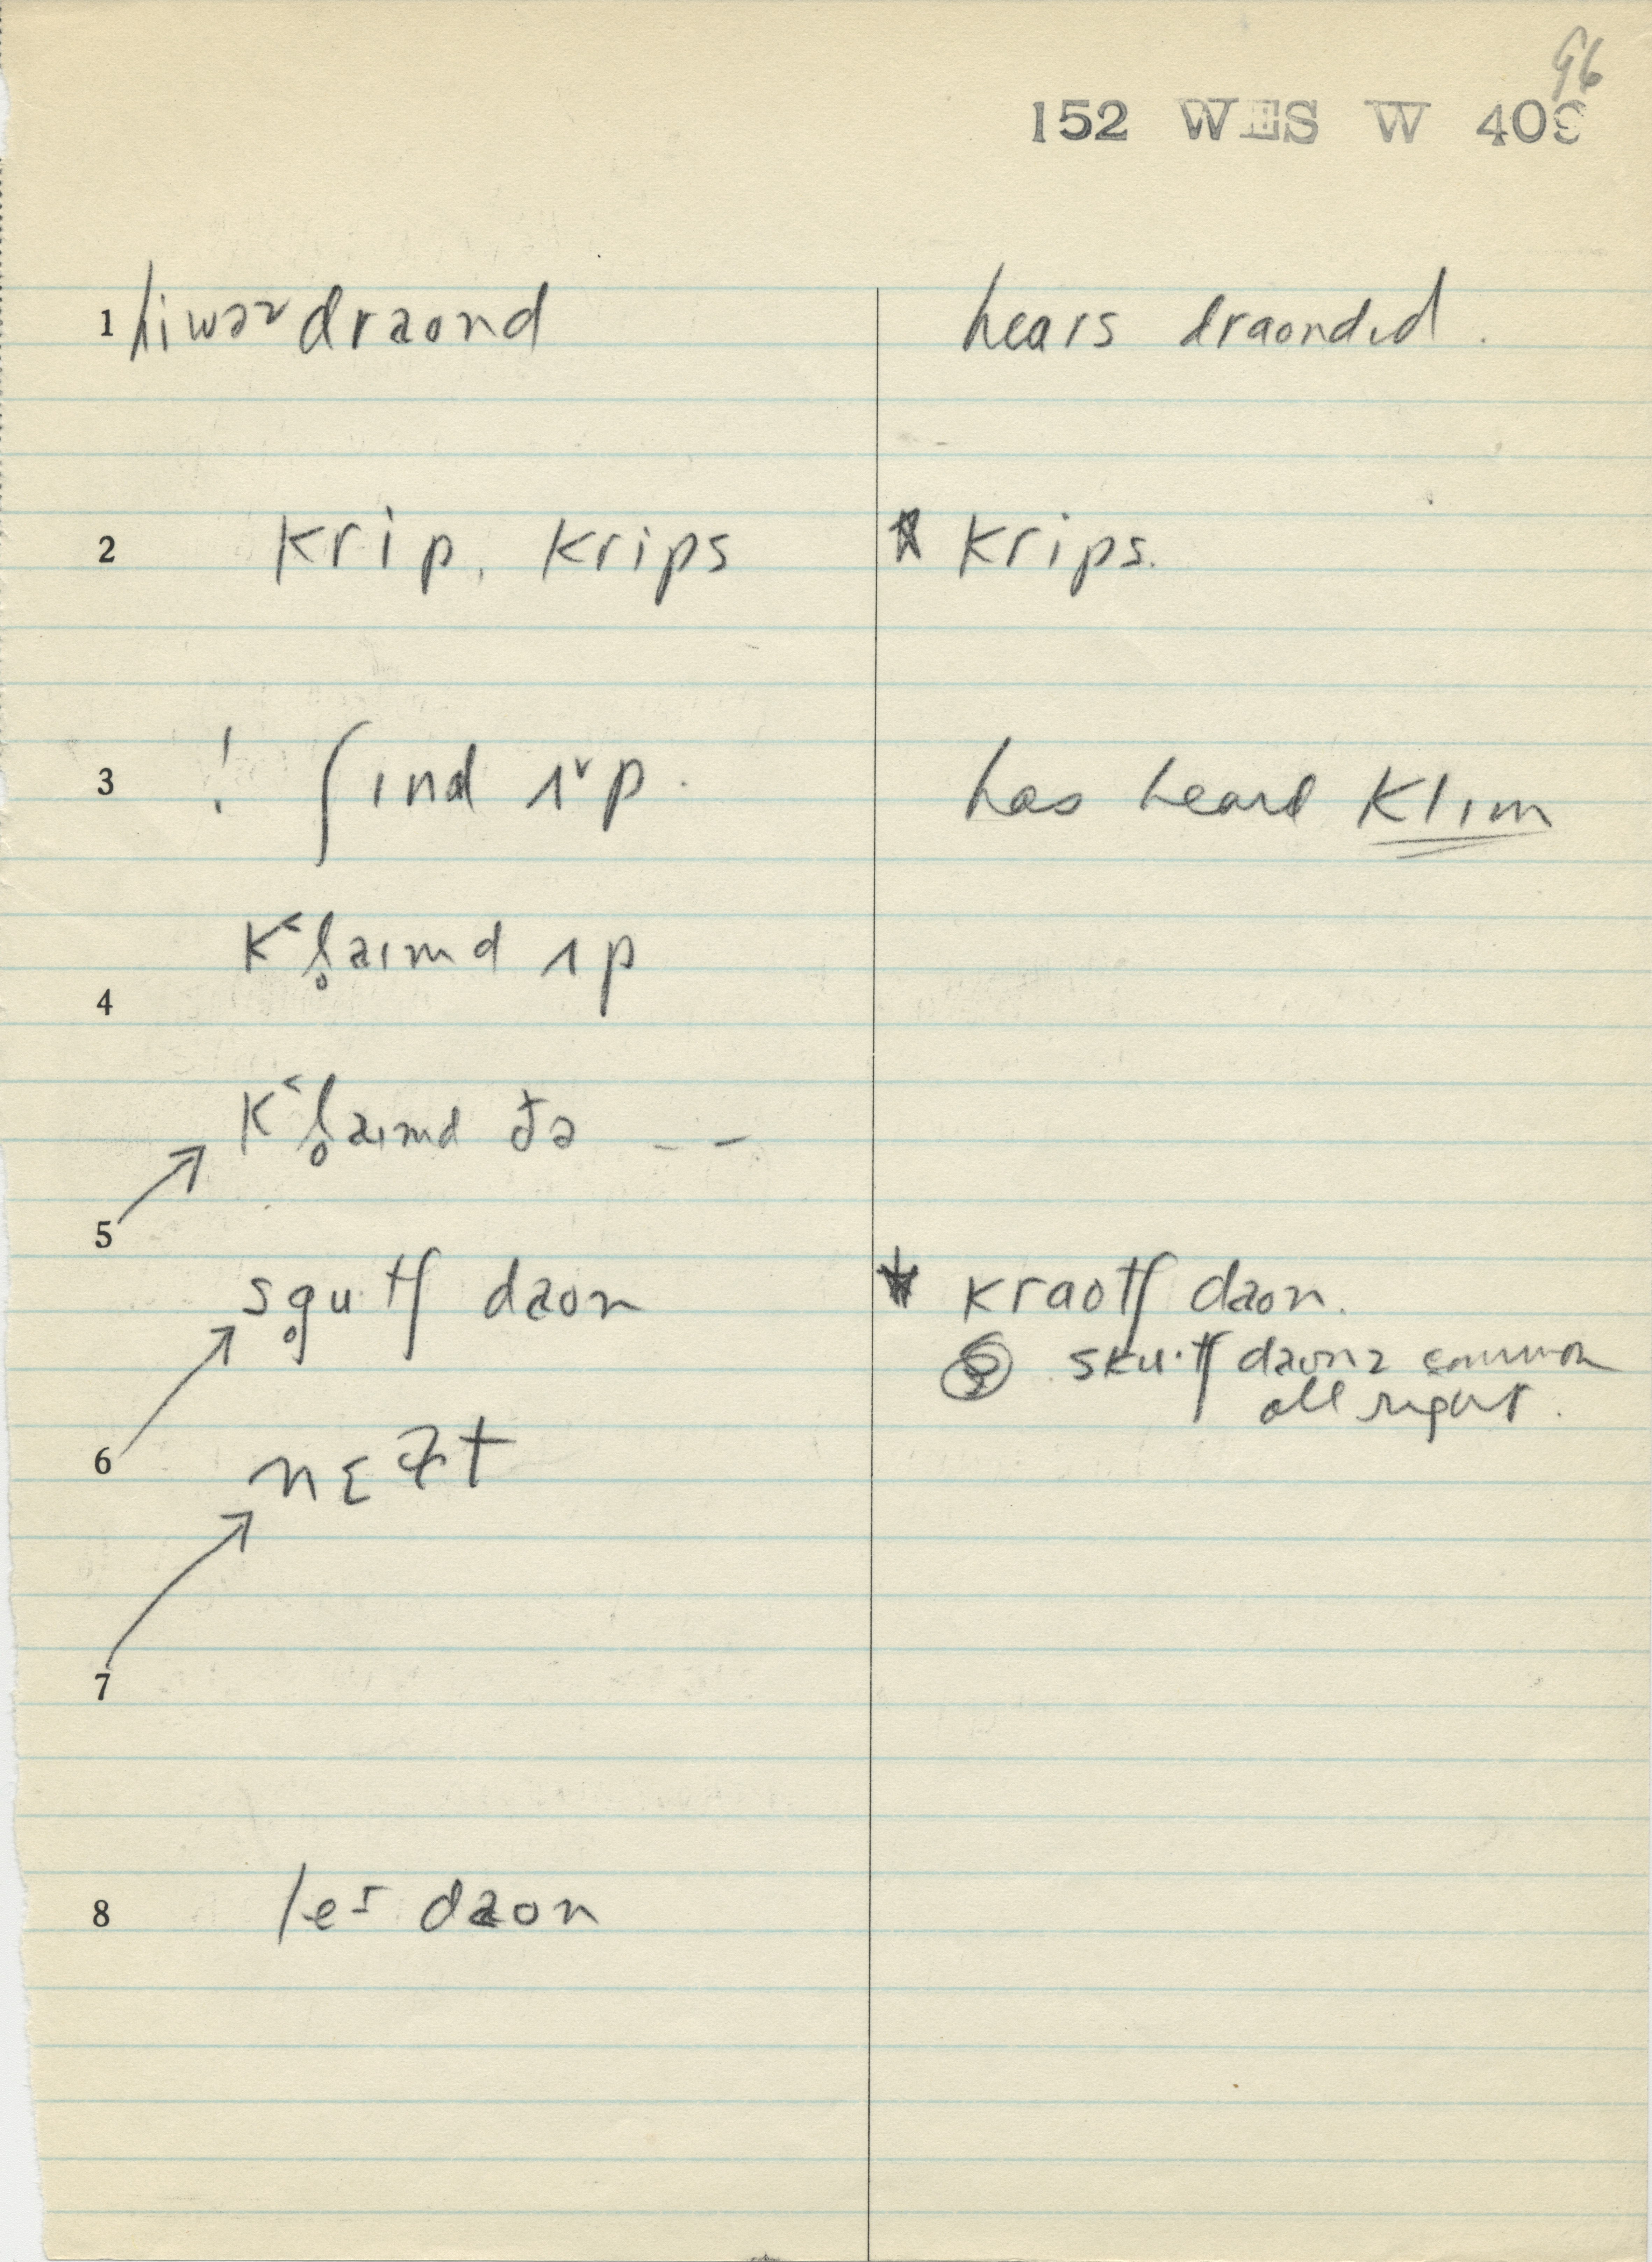 96
152 WES W 403
1 hiwəz draond hears draondɪd.
2 krip, krips krips.
3 ! ʃɪnd ʌᵛp. has heard klɪm
k˂l̥aɪmd ʌp
4
k˂l̥aɪmd ðə - -
5
sg̥u·tʃ daon kraotʃ daon.
sku·tʃ daonz common
all right.
6
nɛɫt
7
8 leɪ daon